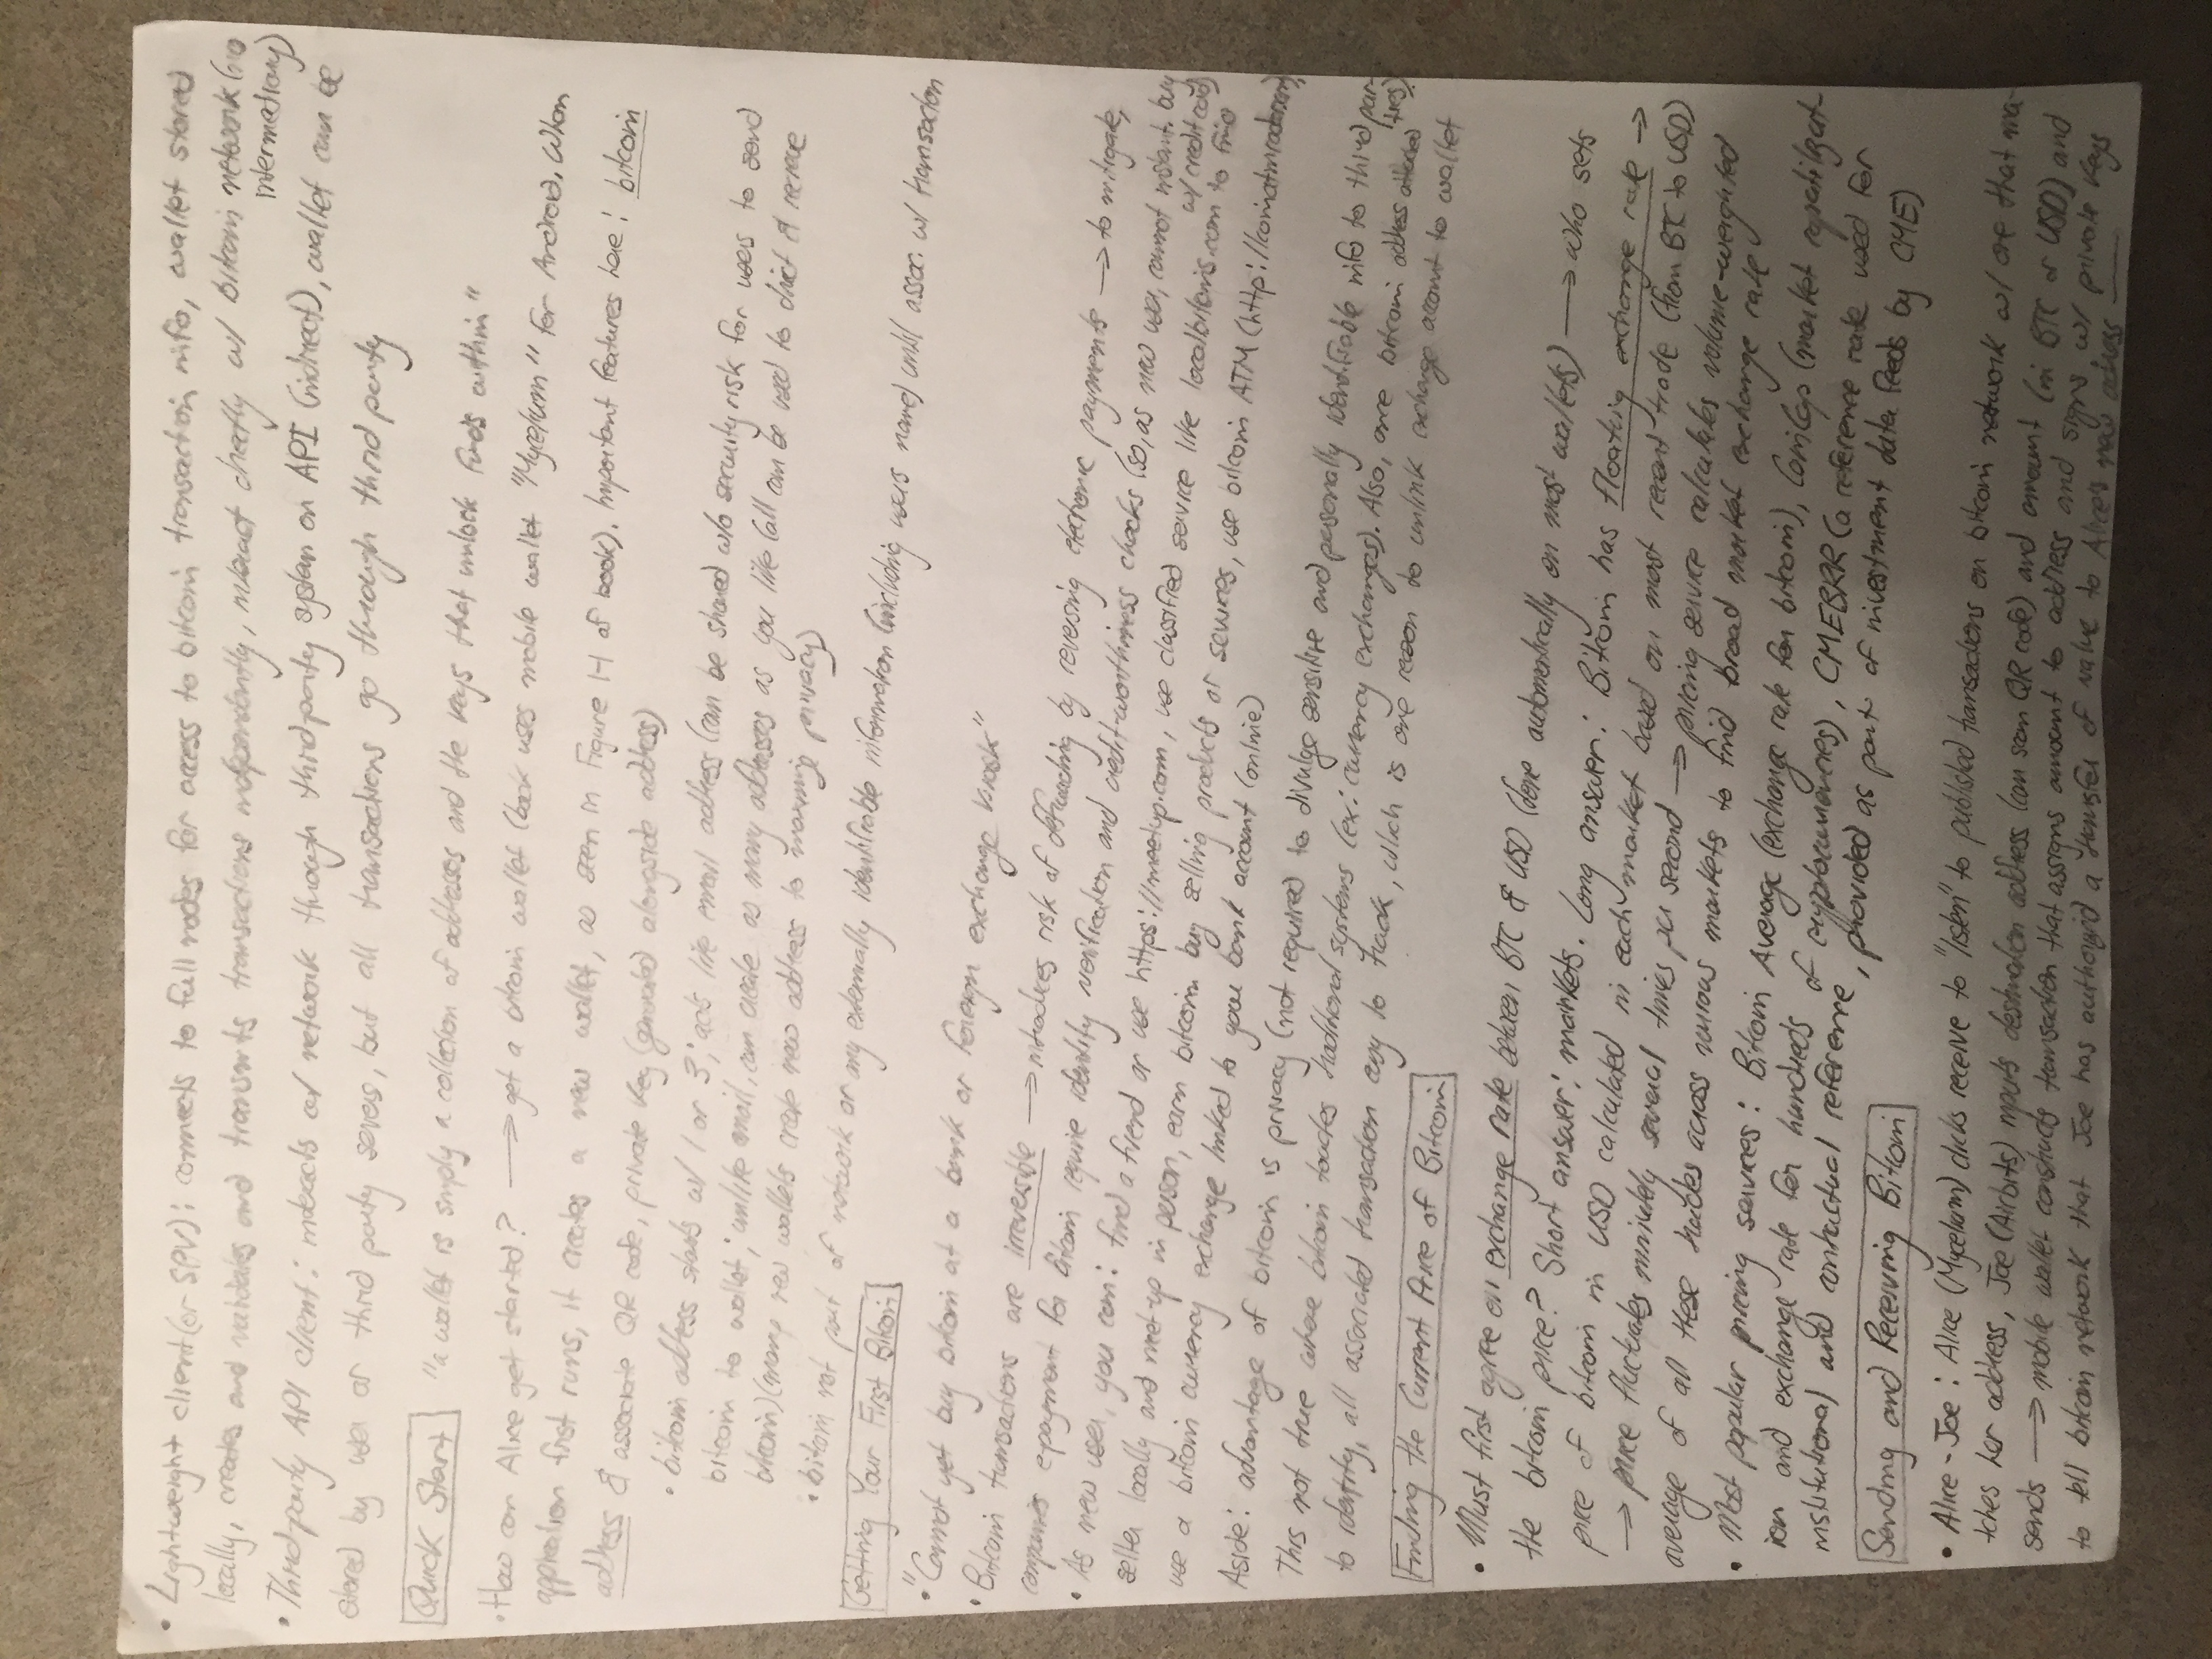 • Lightweight client (or SPV): connects to full nodes for access to bitcoin transaction info, wallet stored
locally, creates and validates and transmits transactions independently, interact directly w/ bitcoin network (no
intermediary)
• Third party API client: interacts w/ network through third party system on API (indirect), wallet can be
stored by user or third party servers, but all transactions go through third party
Quick Start
"a wallet is simply a collection of addresses and the keys that unlock funds within"
• How can Alice get started? → get a bitcoin wallet (book uses mobile wallet "Mycelium" for Android, when
application first runs, it creates a new wallet, as seen in Figure 1-1 of book). Important features here: bitcoin
address & associate QR code, private key (generated alongside address)
• bitcoin address starts w/ 1 or 3; acts like email address (can be shared w/o security risk for users to send
bitcoin to wallet; unlike email, can create as many addresses as you like (all can be used to direct & receive
bitcoin) (many new wallets create new address to maximize privacy)
• bitcoin not part of network or any externally identifiable information (including users name) until assoc. w/ transaction
Getting Your First Bitcoin
• "Cannot yet buy bitcoin at a bank or foreign exchange kiosk"
• Bitcoin transactions are irreversible → introduces risk of defrauding by reversing electronic payments → to mitigate,
companies epayment for bitcoin require identity verification and credit-worthiness checks (so, as new user, cannot instant. buy
w/ credit card)
• As new user, you can: find a friend or use https://meetup.com, use classified service like localbitcoins.com to find
seller locally and met-up in person, earn bitcoin buy selling products or services, use bitcoin ATM (http://coinatmradar.com),
use a bitcoin currency exchange linked to your bank account (online)
Aside: advantage of bitcoin is privacy (not required to divulge sensitive and personally identifiable info to third par-
ties)
This not true where bitcoin touches traditional systems (ex: currency exchanges). Also, once bitcoin address attached
to identity, all associated transaction easy to track, which is one reason to unlink exchange account to wallet
Finding the Current Price of Bitcoin
• Must first agree on exchange rate between BTC & USD (done automatically on most wallets) → who sets
the bitcoin price? Short answer: markets. Long answer: Bitcoin has floating exchange rate →
price of bitcoin in USD calculated in each market based on most recent trade (from BTC to USD)
→ price fluctuates minutely several times per second → pricing service calculates volume-weighted
average of all these trades across various markets to find broad market exchange rate
• Most popular pricing services: Bitcoin Average (exchange rate for bitcoin), CoinCap (market capitilizat-
ion and exchange rate for hundreds of cryptocurrencies), CMEBRR (a reference rate used for
institutional and contractual reference, provided as part of investment data feeds by CME)
Sending and Receiving Bitcoin
• Alice - Joe: Alice (Mycelium) clicks receive to "listen" to published transactions on bitcoin network w/ one that ma-
tches her address, Joe (Airbitz) inputs destination address (can scan QR code) and amount (in BTC or USD) and
sends → mobile wallet constructs transaction that assigns amount to address and signs w/ private keys
to tell bitcoin network that Joe has authorized a transfer of value to Alice's new address